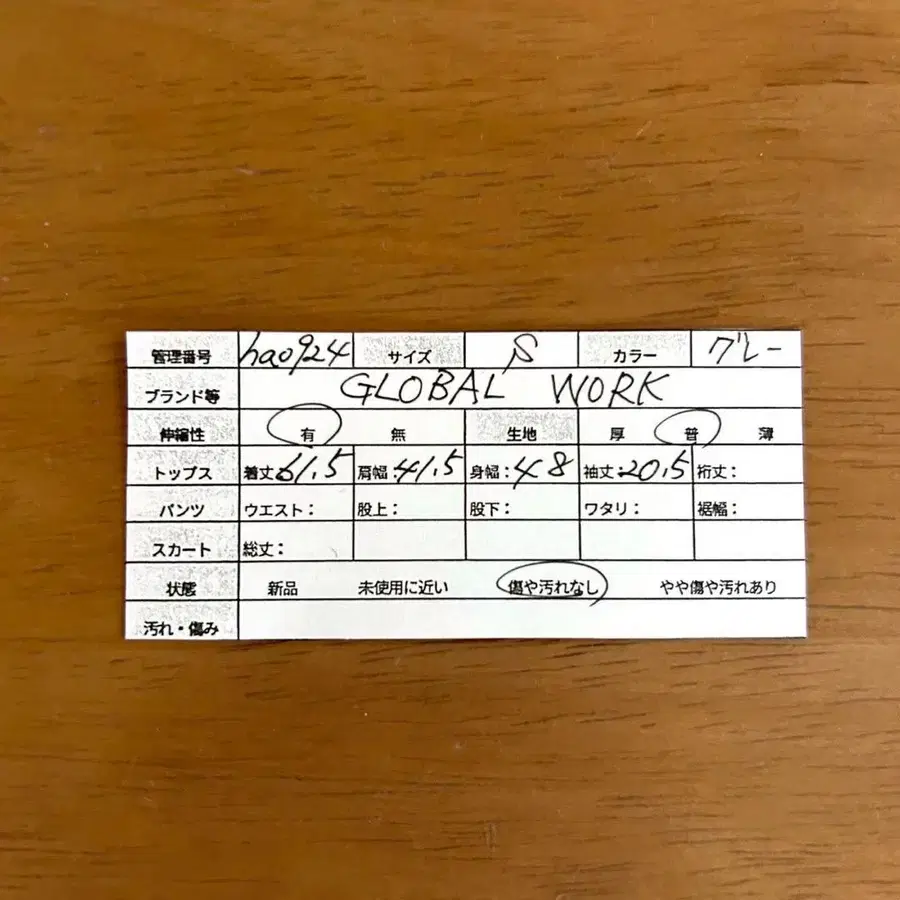 管理番号 hao924 サイズ S カラー グレー
ブランド等 GLOBAL WORK
伸縮性 有 無 生地 厚 普 薄
トップス 着丈:61.5 肩幅:41.5 身幅:48 袖丈:20.5 裄丈:
パンツ ウエスト: 股上: 股下: ワタリ: 裾幅:
スカート 総丈:
状態 新品 未使用に近い 傷や汚れなし やや傷や汚れあり
汚れ・傷み